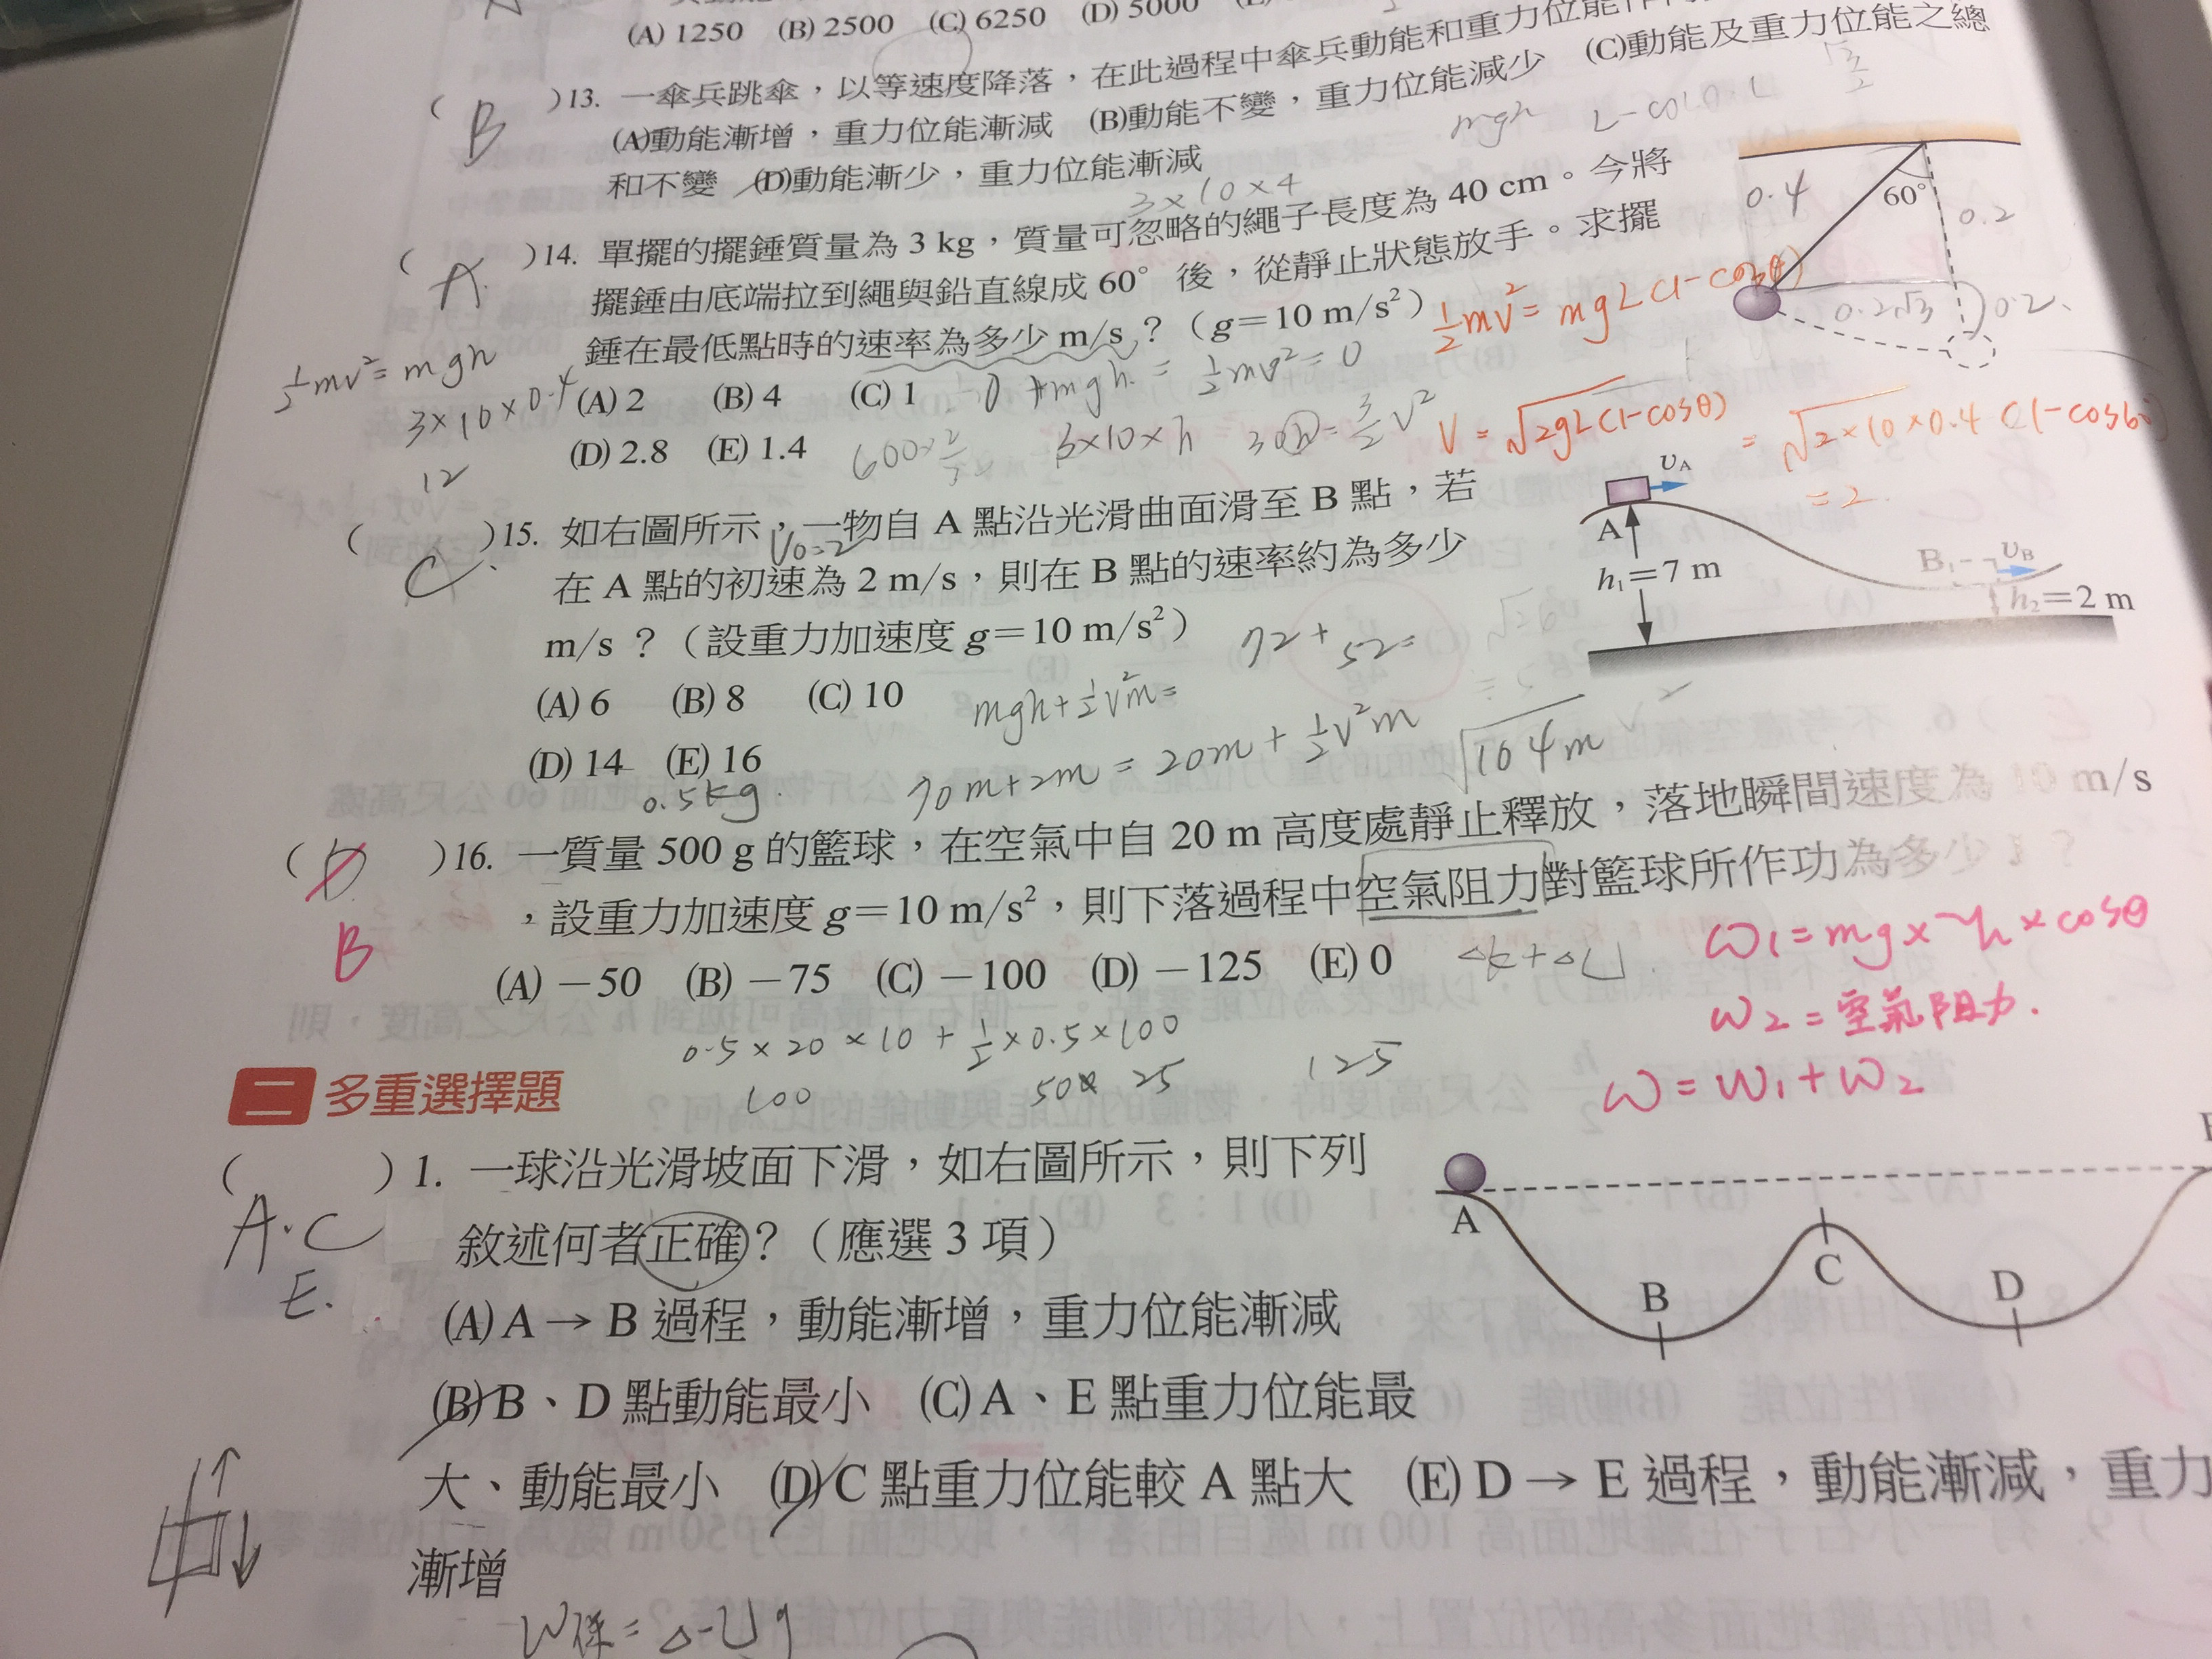 (A) 1250 (B) 2500 (C) 6250 (D) 5000
( B )13. 一傘兵跳傘，以等速度降落，在此過程中傘兵動能和重力位能
(A)動能漸增，重力位能漸減 (B)動能不變，重力位能減少 (C)動能及重力位能之總
和不變 (D)動能漸少，重力位能漸減
mgh L-cosθ·L
3×10×4
( A )14. 單擺的擺錘質量為 3 kg，質量可忽略的繩子長度為 40 cm。今將
擺錘由底端拉到繩與鉛直線成 60° 後，從靜止狀態放手。求擺
錘在最低點時的速率為多少 m/s？（g＝10 m/s²）
(A) 2 (B) 4 (C) 1
(D) 2.8 (E) 1.4
0.4 60° 0.2
0.2√3 0.2
½mv²= mgh
3×10×0.4
12
0 + mgh = ½mv² = 0
3×10×h 30h = 3/2 V²
½mv²= mgL(1-cosθ)
V = √2gL(1-cosθ) = √2×10×0.4(1-cos60
= 2
( C )15. 如右圖所示，一物自 A 點沿光滑曲面滑至 B 點，若
V0=2
在 A 點的初速為 2 m/s，則在 B 點的速率約為多少
m/s？（設重力加速度 g＝10 m/s²）
(A) 6 (B) 8 (C) 10
(D) 14 (E) 16
υA
A
h₁＝7 m
B υB
h₂＝2 m
72+ 52=
mgh+½v²m=
70m+2m = 20m + ½v²m
√104m
0.5kg
( D )16. 一質量 500 g 的籃球，在空氣中自 20 m 高度處靜止釋放，落地瞬間速度為 10 m/s
B
，設重力加速度 g＝10 m/s²，則下落過程中空氣阻力對籃球所作功為多少 J？
(A) －50 (B) －75 (C) －100 (D) －125 (E) 0
△k+△U
0.5×20×10 + ½×0.5×100
100 50 25 125
W1=mg×h×cosθ
W2=空氣阻力.
W=W1+W2
二 多重選擇題
( A.C E. ) 1. 一球沿光滑坡面下滑，如右圖所示，則下列
敘述何者正確？（應選 3 項）
(A) A → B 過程，動能漸增，重力位能漸減
(B) B、D 點動能最小 (C) A、E 點重力位能最
大、動能最小 (D) C 點重力位能較 A 點大 (E) D → E 過程，動能漸減，重力
漸增
A B C D
W保=△-Ug